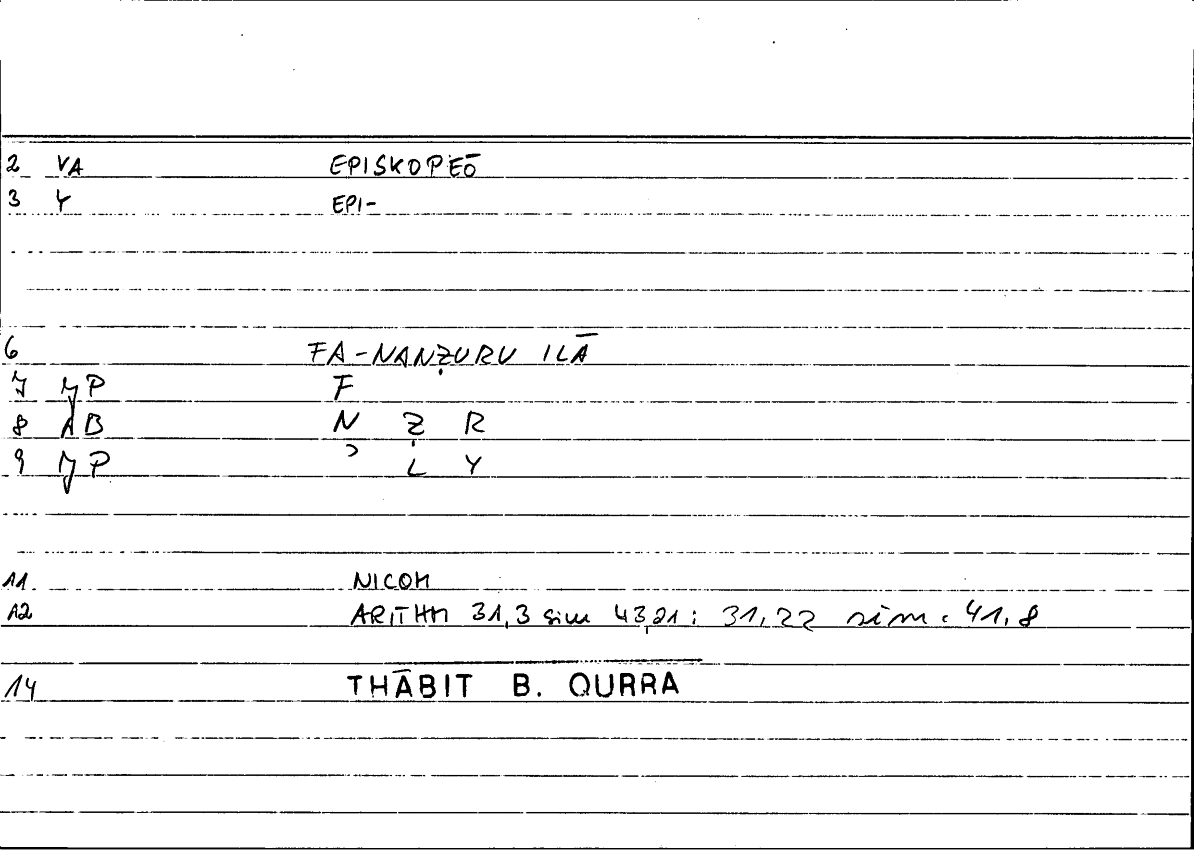 2 VA EPISKOPEŌ
3 Y EPI-
6 FA-NANẒURU ILĀ
7 YP F
8 AB N Ẓ R
9 YP ʾ L Y
A1. NICOM
A2 ARITHM 31,3 sim 43,21: 31,22 sim. 41,8
14 THĀBIT B. QURRA